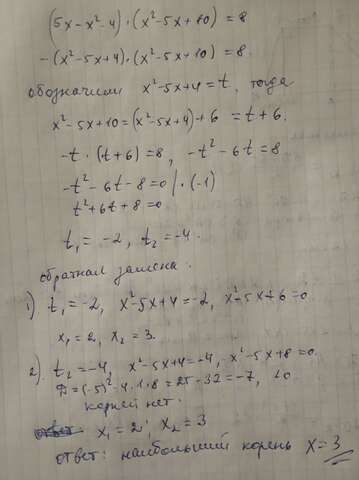 (5x-x²-4)·(x²-5x+10)=8
-(x²-5x+4)·(x²-5x+10)=8.
обозначим x²-5x+4=t, тогда
x²-5x+10=(x²-5x+4)+6 =t+6.
-t·(t+6)=8, -t²-6t=8
-t²-6t-8=0|·(-1)
t²+6t+8=0
t₁=-2, t₂=-4.
обратная замена:
1) t₁=-2, x²-5x+4=-2, x²-5x+6=0
x₁=2, x₂=3.
2). t₂=-4, x²-5x+4=-4, x²-5x+8=0.
D=(-5)²-4·1·8=25-32=-7, <0.
корней нет.
x₁=2; x₂=3
ответ: наибольший корень x=3